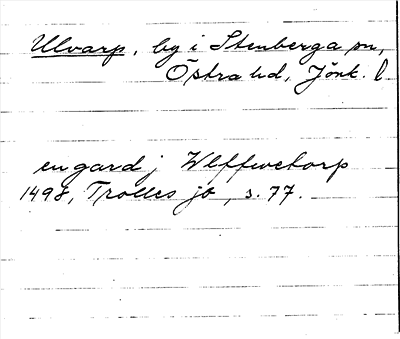 Ulvarp, by i Stenberga sn,
Östra hd, Jönk. l
en gard i Wlffwetorp
1498, Trolles jb, s. 77.